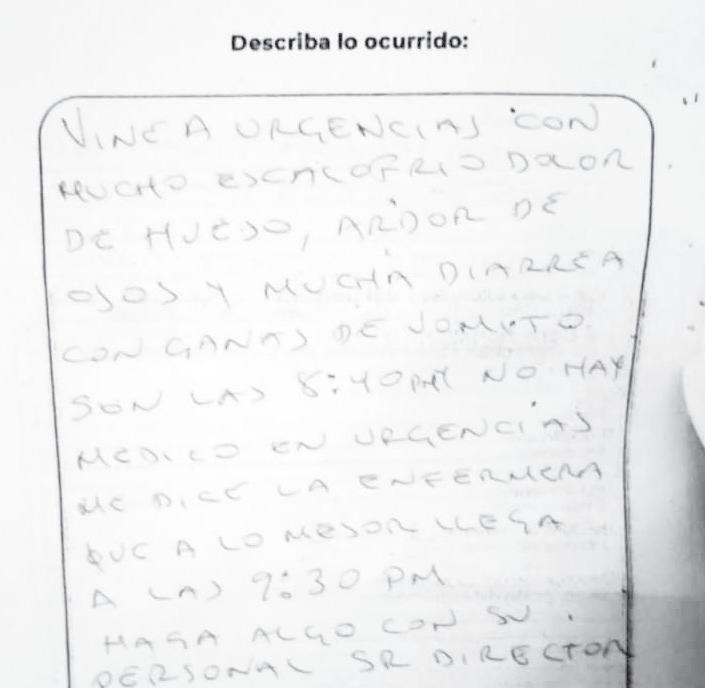 Describa lo ocurrido:
VINE A URGENCIAS CON
MUCHO ESCALOFRIO DOLOR
DE HUESO, ARDOR DE
OJOS Y MUCHA DIARREA
CON GANAS DE VOMITO
SON LAS 8:40 PM NO HAY
MEDICO EN URGENCIAS
ME DICE LA ENFERMERA
QUE A LO MEJOR LLEGA
A LAS 9:30 PM
HAGA ALGO CON SU
PERSONAL SR DIRECTOR